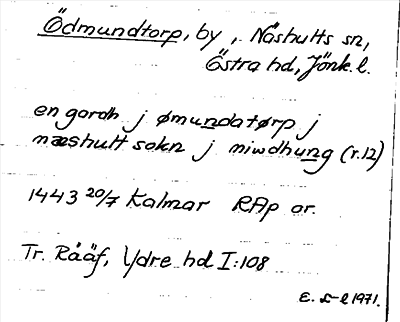 Ödmundtorp, by, Näshults sn,
Östra hd, Jönk. l.
en gardh j ømundatørp j
næshult sokn j miwdhung (r.12)
1443 20/7 Kalmar RAp or.
Tr. Rääf, Ydre hd I:108
E. L-l 1971.